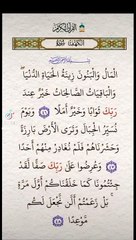 القرآن الكريم
الكهف
الْمَالُ وَالْبَنُونَ زِينَةُ الْحَيَاةِ الدُّنْيَا
وَالْبَاقِيَاتُ الصَّالِحَاتُ خَيْرٌ عِندَ
رَبِّكَ ثَوَابًا وَخَيْرٌ أَمَلًا ٤٦ وَيَوْمَ
نُسَيِّرُ الْجِبَالَ وَتَرَى الْأَرْضَ بَارِزَةً
وَحَشَرْنَاهُمْ فَلَمْ نُغَادِرْ مِنْهُمْ أَحَدًا
٤٧ وَعُرِضُوا عَلَىٰ رَبِّكَ صَفًّا لَّقَدْ
جِئْتُمُونَا كَمَا خَلَقْنَاكُمْ أَوَّلَ مَرَّةٍ
بَلْ زَعَمْتُمْ أَلَّن نَّجْعَلَ لَكُم
مَّوْعِدًا